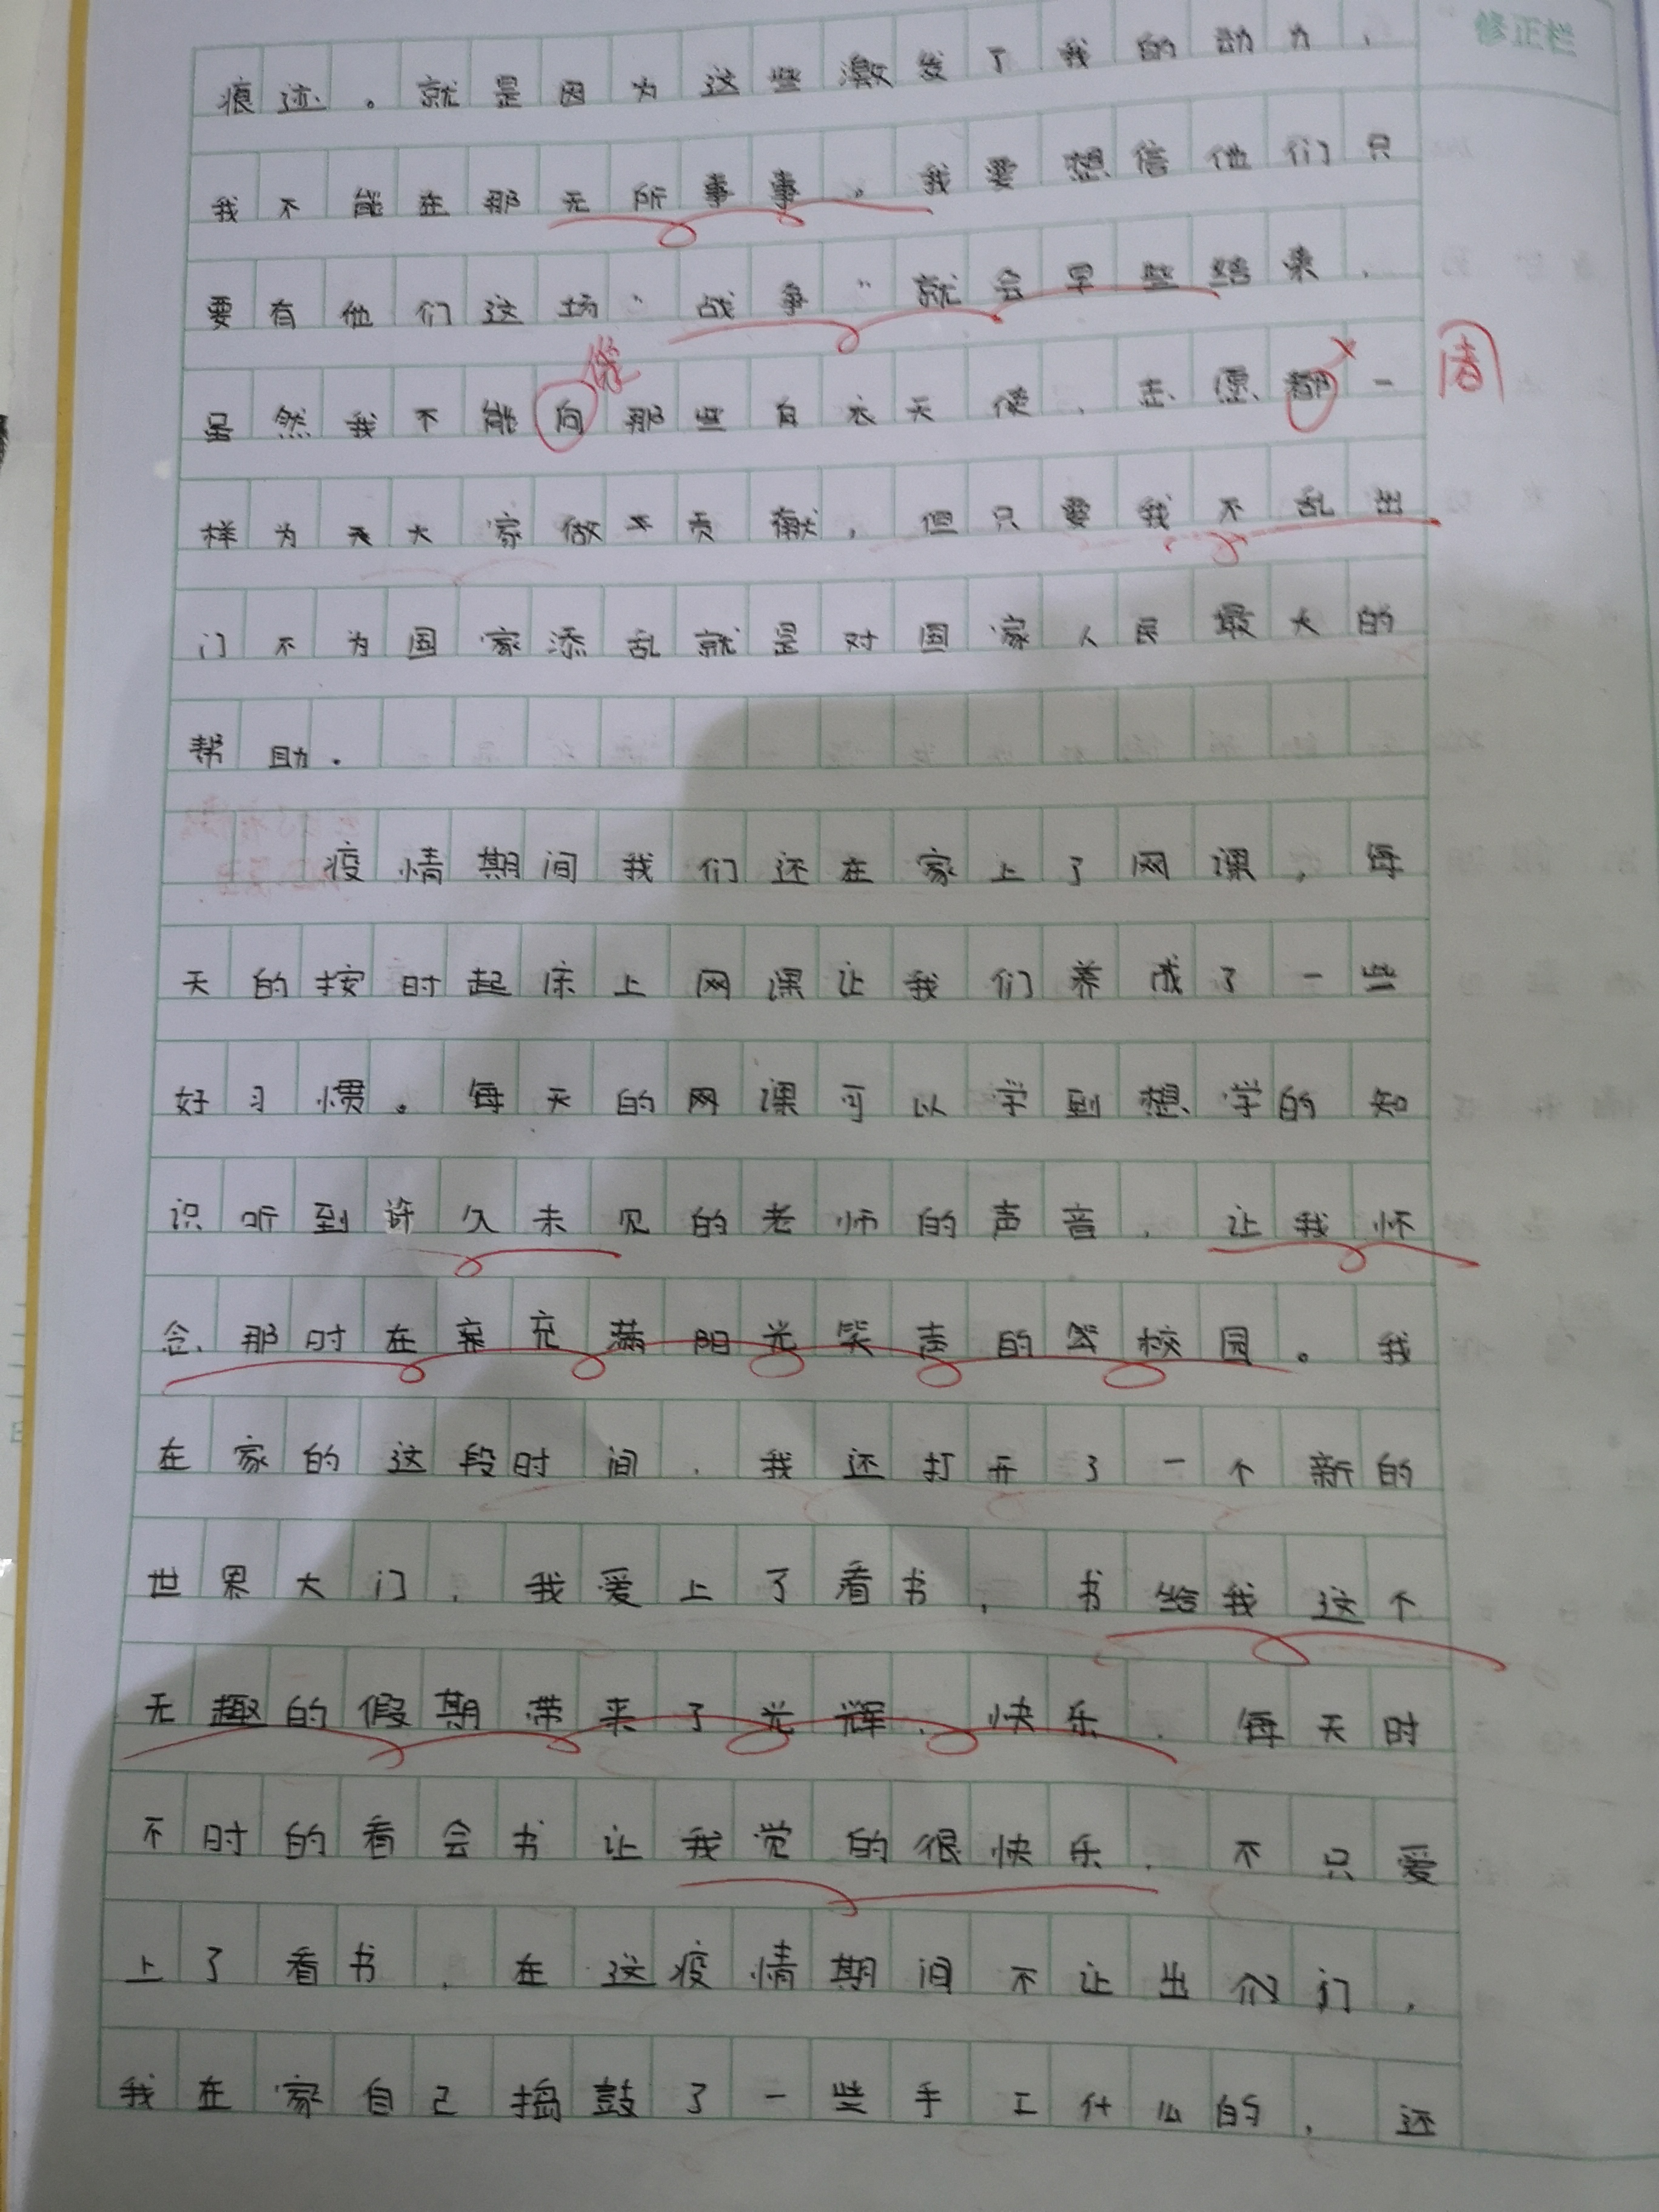 修正栏
痕迹。就是因为这些激发了我的动力，
我不能在那无所事事。我要想信他们只
要有他们这场“战争”就会早些结束，
虽然我不能向那些白衣天使，志愿都一
样为天大家做不贡献，但只要我不乱出
门不为国家添乱就是对国家人民最大的
帮助。
疫情期间我们还在家上了网课，每
天的按时起床上网课让我们养成了一些
好习惯。每天的网课可以学到想学的知
识听到许久未见的老师的声音，让我怀
念那时在亲充满阳光笑声的学校园。我
在家的这段时间，我还打开了一个新的
世界大门，我爱上了看书，书给我这个
无趣的假期带来了光辉、快乐，每天时
不时的看会书让我觉的很快乐，不只爱
上了看书，在这疫情期间不让出门，
我在家自己捣鼓了一些手工什么的，还